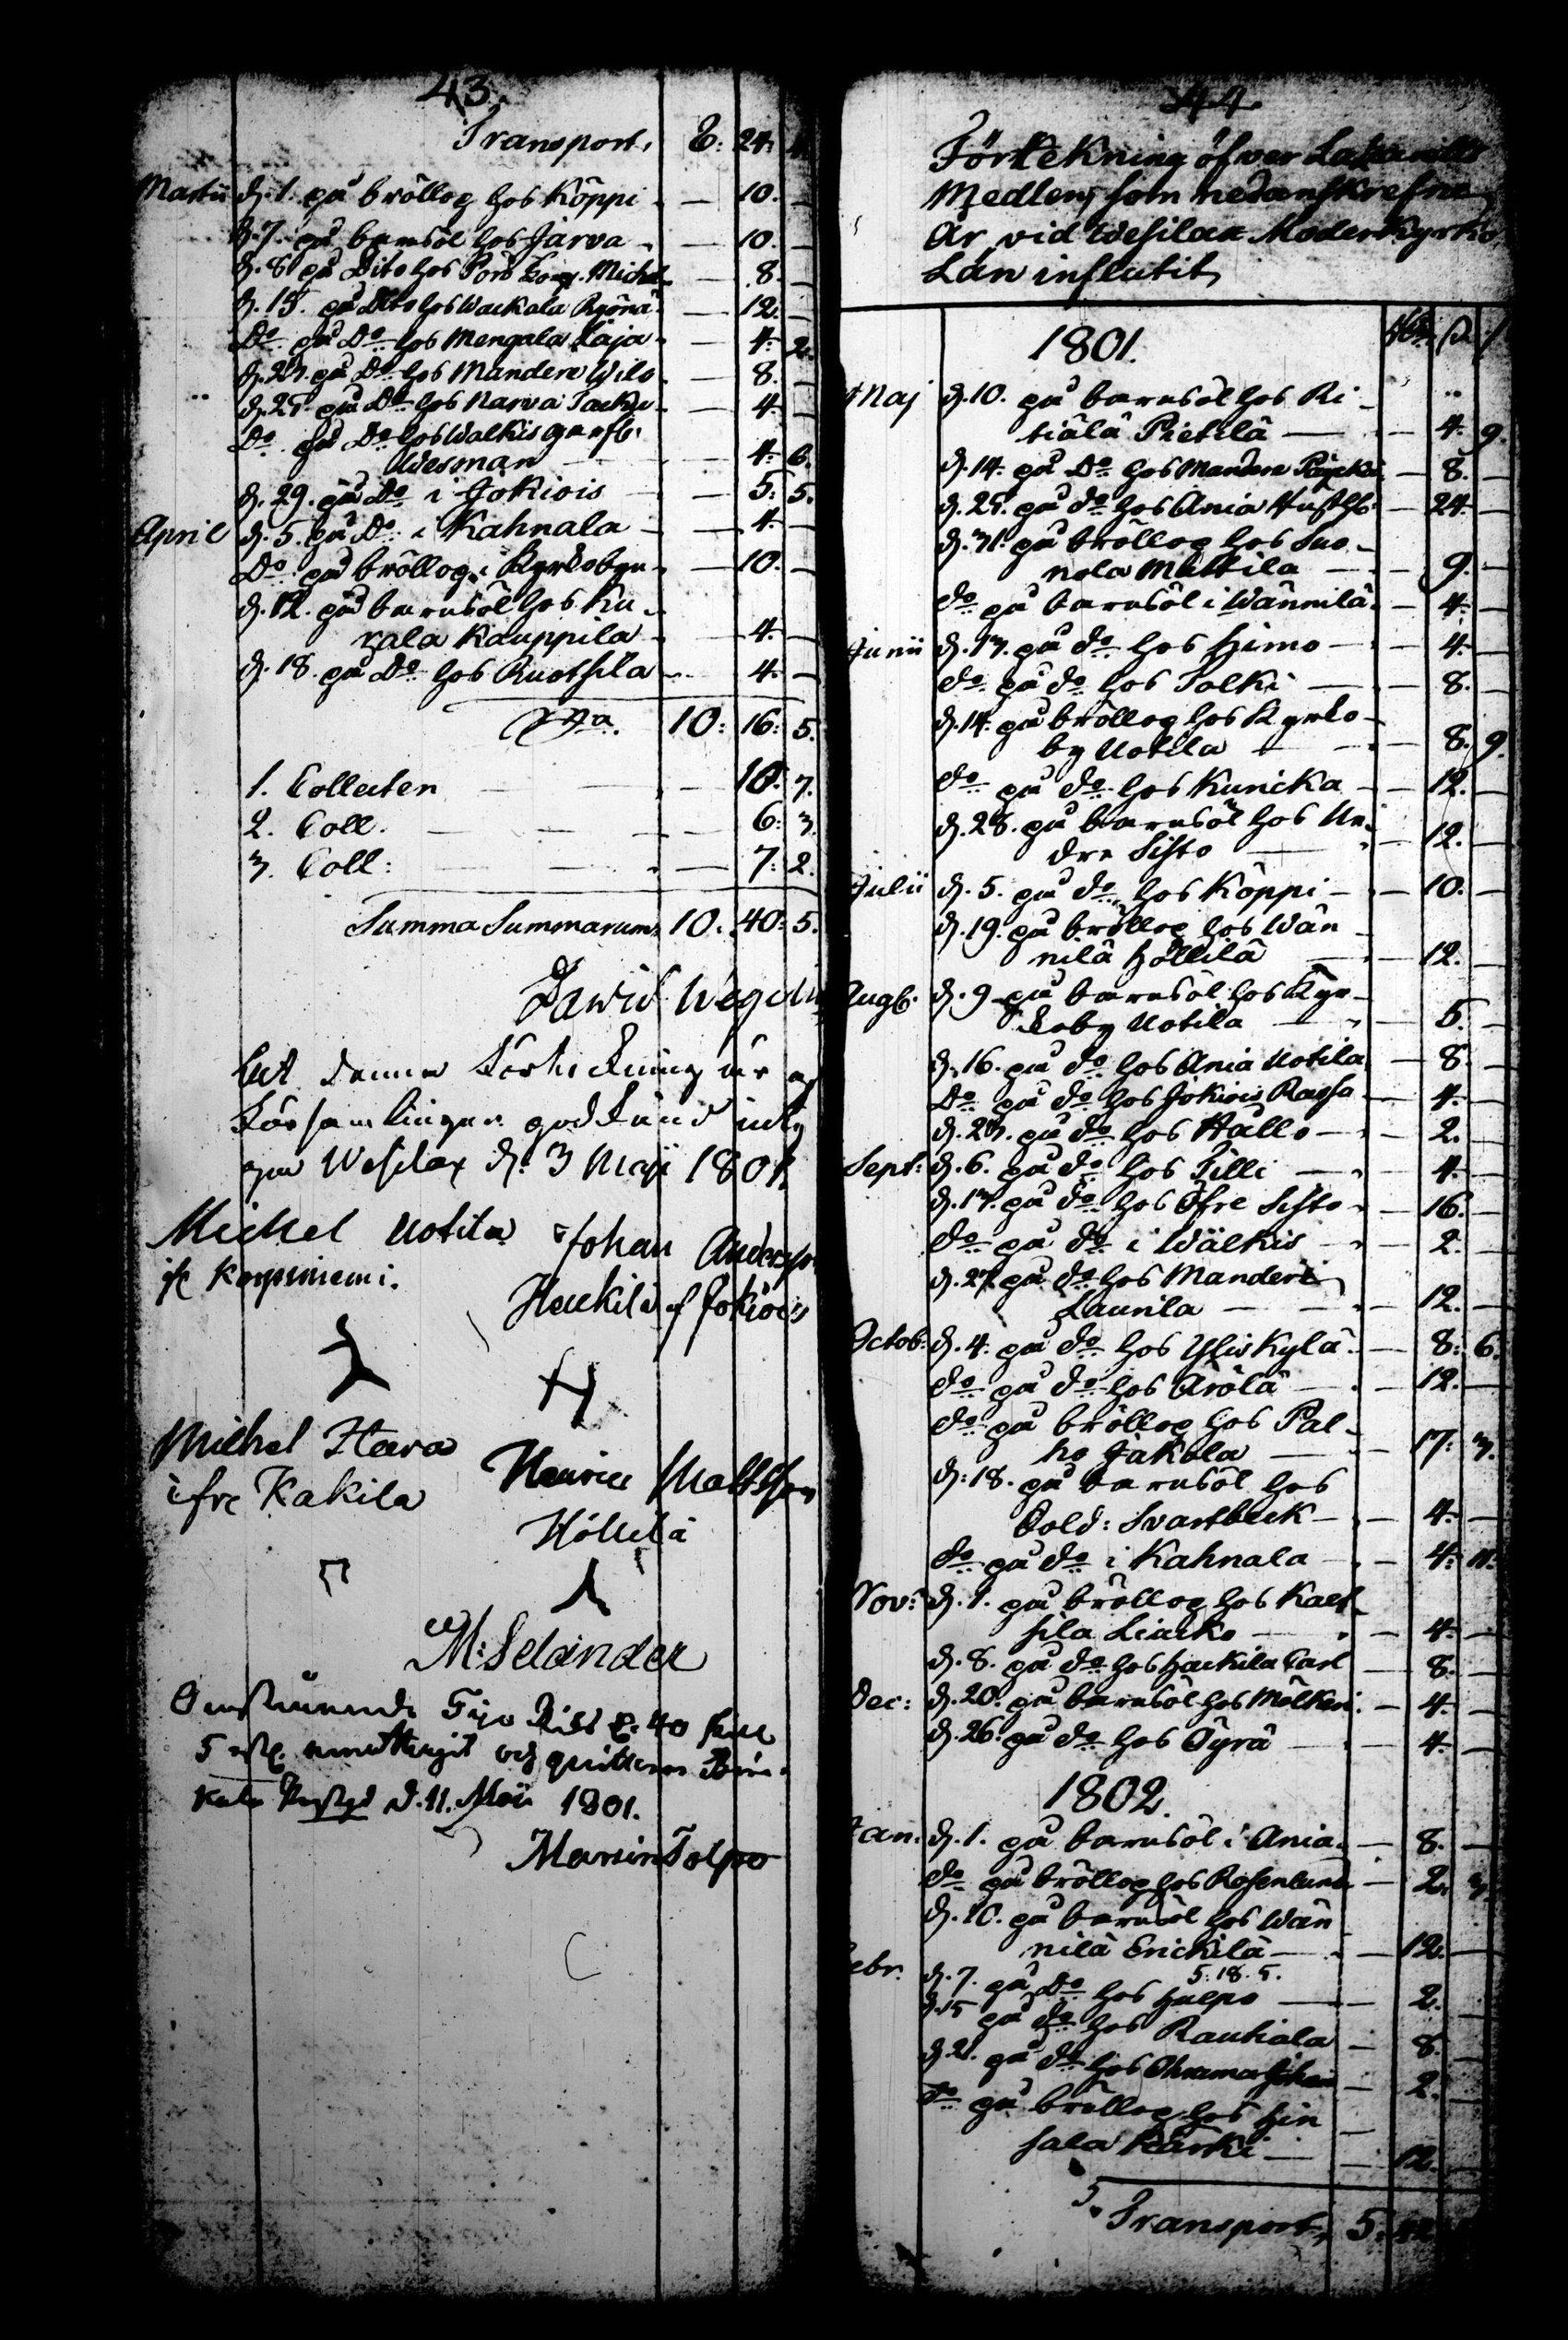 43.
Transport, 8: 24:
Martii d. 1. på bröllop hos Köppi — 10. —
d. 7. på barnsöl hos Järva — 10. —
d. 8 på Dito hos Michel — 8. —
d. 15. på Dito hos Wackala — 12. —
Do på Do hos Mengala Laja — 4. 2.
d. 23. på Do hos Mandere Wilo — 8. —
d. 25. på Do hos Narva — 4. —
Do på Do hos Walkis
Wesman — 4. 6.
d. 29. på Do i Jokiois — 5: 5.
April d. 5. på Do i Kahnala — 4. —
Do på bröllop i Kyrkobyn — 10. —
d. 12. på barnsöl hos Ku-
rala Kauppila — 4. —
d. 18. på Do hos Ruotsila — 4. —
Sma. 10: 16: 5.
1. Collecten — 10. 7.
2. Coll. — 6: 3.
3. Coll: — 7: 2.
Summa Summarum, 10. 40: 5.
David Wegelius
Att denna Förtekning är af
Församlingen godkänd
Wesilax d. 3 Maji 1801.
Michel Uotila
Johan Andersson
Korpiniemi.
Heikilä af Jokiois
Michel Harva
ifrå Kakila
Henric Mattsson
Höllilä
M: Selander
Tijo Rikd 40 skill
5 emottagit och quitteras
d. 11. Maii 1801.
Martin Tolpo
44.
Förtekning öfver Lasaretts
Medlen, som nedanskrefne
År vid Wesilax Moderkyrko
Län influtit,
1801.
Maj d. 10. på barnsöl hos Ri-
tiälä Pietilä — 4. 9.
d. 14. på Do hos Mandere — 8. —
d. 25. på do hos Ania — 24. —
d. 31. på bröllop hos Suo-
nola Mattila — 9. —
do på barnsöl i Wännilä — 4. —
Junii d. 13. på do hos Himo — 4. —
do på do hos Tolki — 8. —
d. 14. på bröllop hos Kyrko-
by Uotila — 8. 9.
do på do hos Kunicka — 12. —
d. 28. på barnsöl hos Un-
dre Sisto — 12. —
Julii d. 5. på do hos Köppi — 10. —
d. 19. på bröllop hos Wän
nilä Höllilä — 12. —
Aug. d. 9 på barnsöl hos Kyr-
koby Uotila — 5. —
d. 16. på do hos Ania Uotila — 8. —
Do på do hos Jokiois — 4. —
d. 23. på do hos Hallo — 2. —
Sept: d. 6. på do hos Tilli — 4. —
d. 13. på do hos Öfre Sisto — 16. —
do på do i Wälkis — 2. —
d. 27. på do hos Mandere
Launila — 12. —
Octob: d. 4. på do hos Yliskylä — 8: 6.
do på do hos Ärölä — 12. —
do på bröllop hos Pal-
ho Jakola — 17: 3.
d: 18. på barnsöl hos
Sold: Svartbeck — 4. —
do på do i Kahnala — 4: 11.
Nov: d. 1. på bröllop hos Kalt-
sila Liacko — 4. —
d. 8. på do hos Hackila Carl — 8. —
Dec: d. 20. på barnsöl hos Mölkeri — 4. —
d. 26. på do hos Tyrä — 4. —
1802.
Jan. d. 1. på barnsöl i Ania — 8. —
do på bröllop hos Rosenlund — 2. 3.
d. 10. på barnsöl hos Wän
nilä Erickilä — 12. —
5: 18. 5.
Febr. d. 7. på Do hos Hulpo — 2. —
d. 15 på do hos Rautiala — 8. —
d. 21. på do hos — 2. —
do på bröllop hos Hin
sala Kärki — 12. —
Transport, 5: